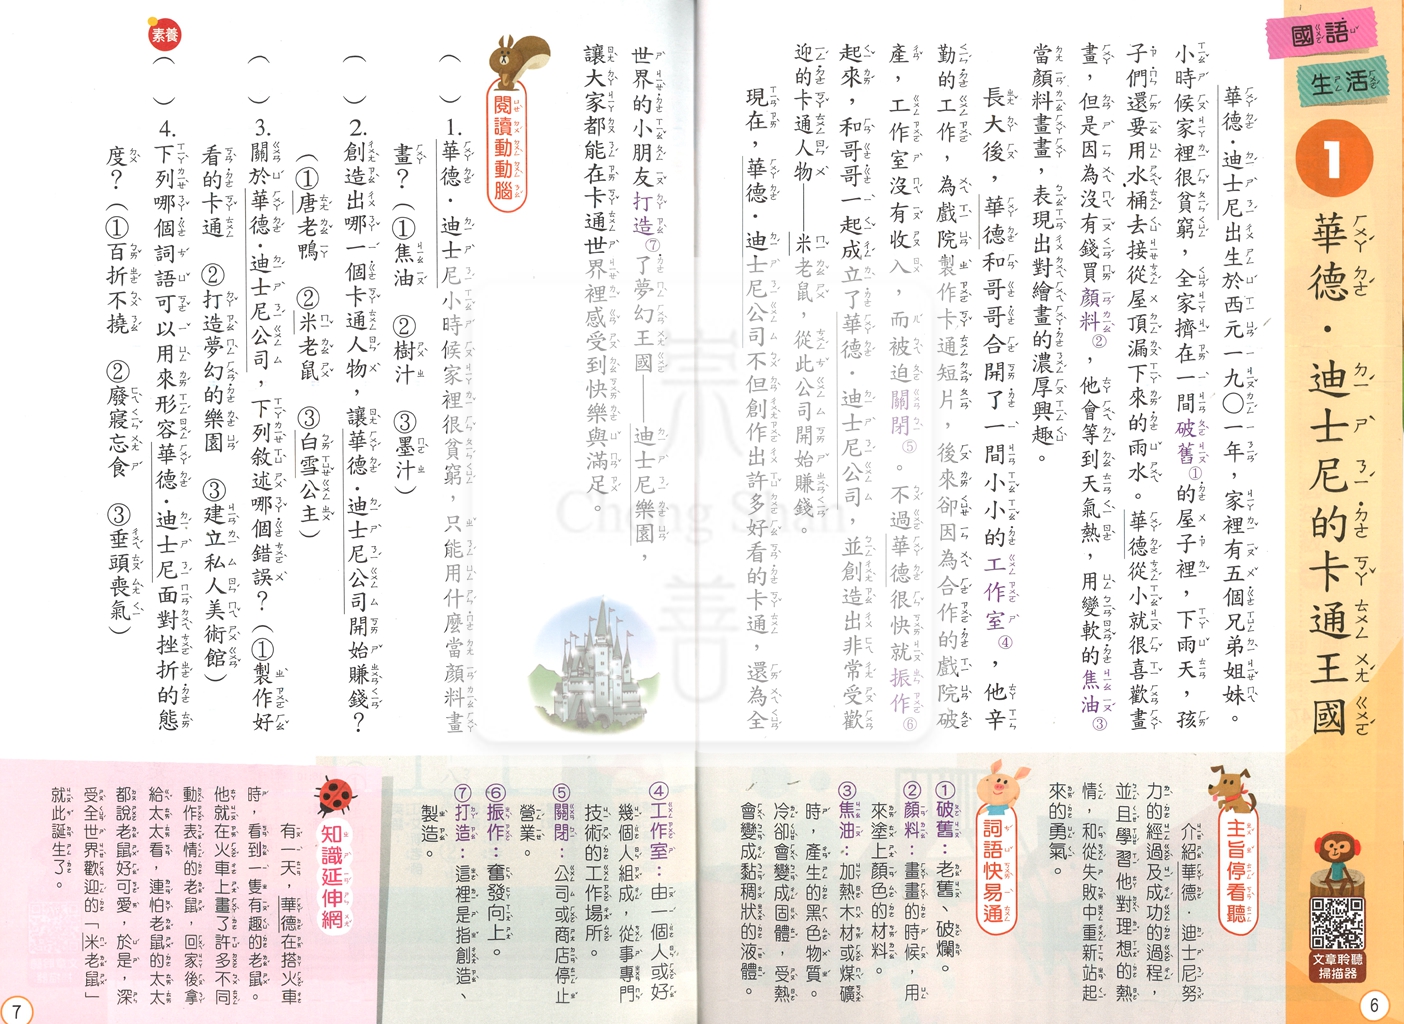 國語
生活
1
華德・迪士尼的卡通王國
華德・迪士尼出生於西元一九〇一年，家裡有五個兄弟姐妹。
小時候家裡很貧窮，全家擠在一間破舊①的屋子裡，下雨天，孩
子們還要用水桶去接從屋頂漏下來的雨水。華德從小就很喜歡畫
畫，但是因為沒有錢買顏料②，他會等到天氣熱，用變軟的焦油③
當顏料畫畫，表現出對繪畫的濃厚興趣。
長大後，華德和哥哥合開了一間小小的工作室④，他辛
勤的工作，為戲院製作卡通短片，後來卻因為合作的戲院破
產，工作室沒有收入，而被迫關閉⑤。不過華德很快就振作⑥
起來，和哥哥一起成立了華德・迪士尼公司，並創造出非常受歡
迎的卡通人物——米老鼠，從此公司開始賺錢。
現在，華德・迪士尼公司不但創作出許多好看的卡通，還為全
世界的小朋友打造⑦了夢幻王國——迪士尼樂園，
讓大家都能在卡通世界裡感受到快樂與滿足。
閱讀動動腦
（　）1.華德・迪士尼小時候家裡很貧窮，只能用什麼當顏料畫
畫？（①焦油　②樹汁　③墨汁）
（　）2.創造出哪一個卡通人物，讓華德・迪士尼公司開始賺錢？
（①唐老鴨　②米老鼠　③白雪公主）
（　）3.關於華德・迪士尼公司，下列敘述哪個錯誤？（①製作好
看的卡通　②打造夢幻的樂園　③建立私人美術館）
素養
（　）4.下列哪個詞語可以用來形容華德・迪士尼面對挫折的態
度？（①百折不撓　②廢寢忘食　③垂頭喪氣）
主旨停看聽
介紹華德・迪士尼努
力的經過及成功的過程，
並且學習他對理想的熱
情，和從失敗中重新站起
來的勇氣。
詞語快易通
①破舊：老舊、破爛。
②顏料：畫畫的時候，用
來塗上顏色的材料。
③焦油：加熱木材或煤礦
時，產生的黑色物質。
冷卻會變成固體，受熱
會變成黏稠狀的液體。
④工作室：由一個人或好
幾個人組成，從事專門
技術的工作場所。
⑤關閉：公司或商店停止
營業。
⑥振作：奮發向上。
⑦打造：這裡是指創造、
製造。
知識延伸網
有一天，華德在搭火車
時，看到一隻有趣的老鼠。
他就在火車上畫了許多不同
動作表情的老鼠，回家後拿
給太太看，連怕老鼠的太太
都說老鼠好可愛，於是，深
受全世界歡迎的「米老鼠」
就此誕生了。
文章聆聽
掃描器
6
7
崇善
Chong Shan